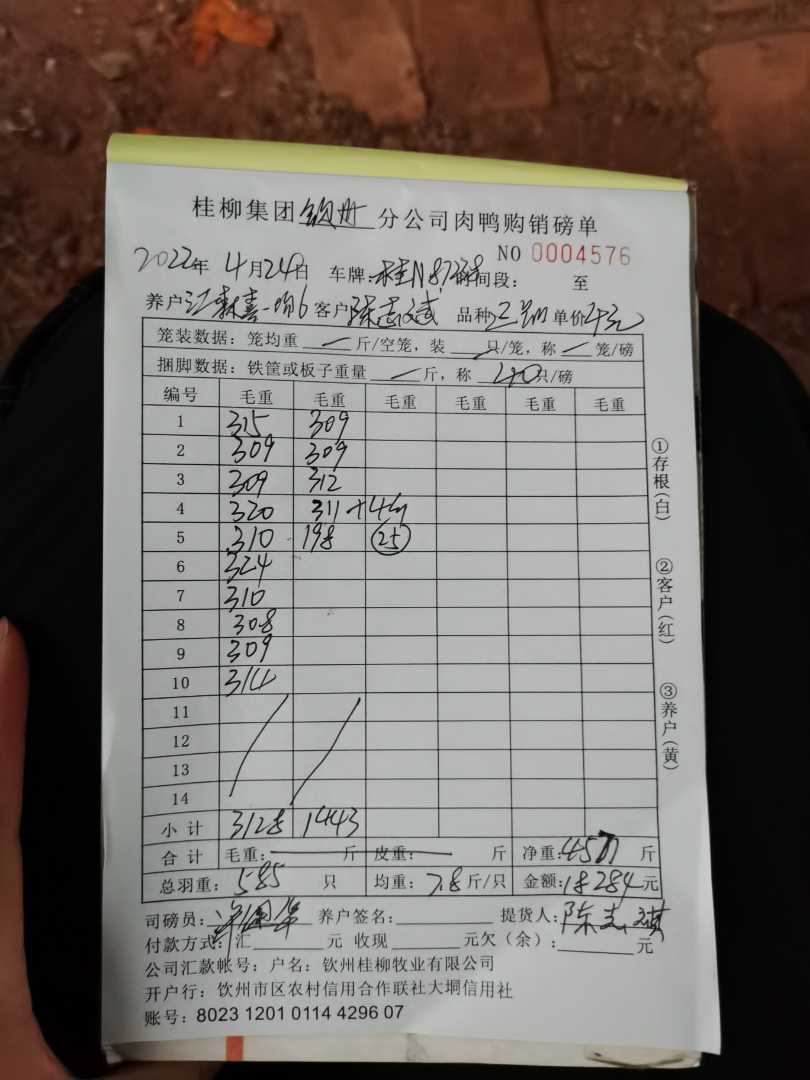 桂柳集团钦州分公司肉鸭购销磅单
NO 0004576
2022年 4月24日 车牌:桂N 时间段: 至
养户:江 客户:陈志 品种: 单价:4元
笼装数据: 笼均重 — 斤/空笼, 装 — 只/笼, 称 — 笼/磅
捆脚数据: 铁筐或板子重量 — 斤, 称 40只/磅
编号 毛重 毛重 毛重 毛重 毛重 毛重
1 315 309
2 309 309
3 309 312
4 320 311+4
5 310 198 25
6 324
7 310
8 308
9 309
10 314
11
12
13
14
小计 3128 1443
合计 毛重: — 斤 皮重: — 斤 净重:4571 斤
总羽重: 585 只 均重: 7.8斤/只 金额:18284元
司磅员: 养户签名: 提货人:陈志
付款方式: 汇 元 收现 元欠(余): 元
公司汇款帐号: 户名: 钦州桂柳牧业有限公司
开户行: 饮州市区农村信用合作联社大垌信用社
账号: 8023 1201 0114 4296 07
①存根(白)
②客户(红)
③养户(黄)